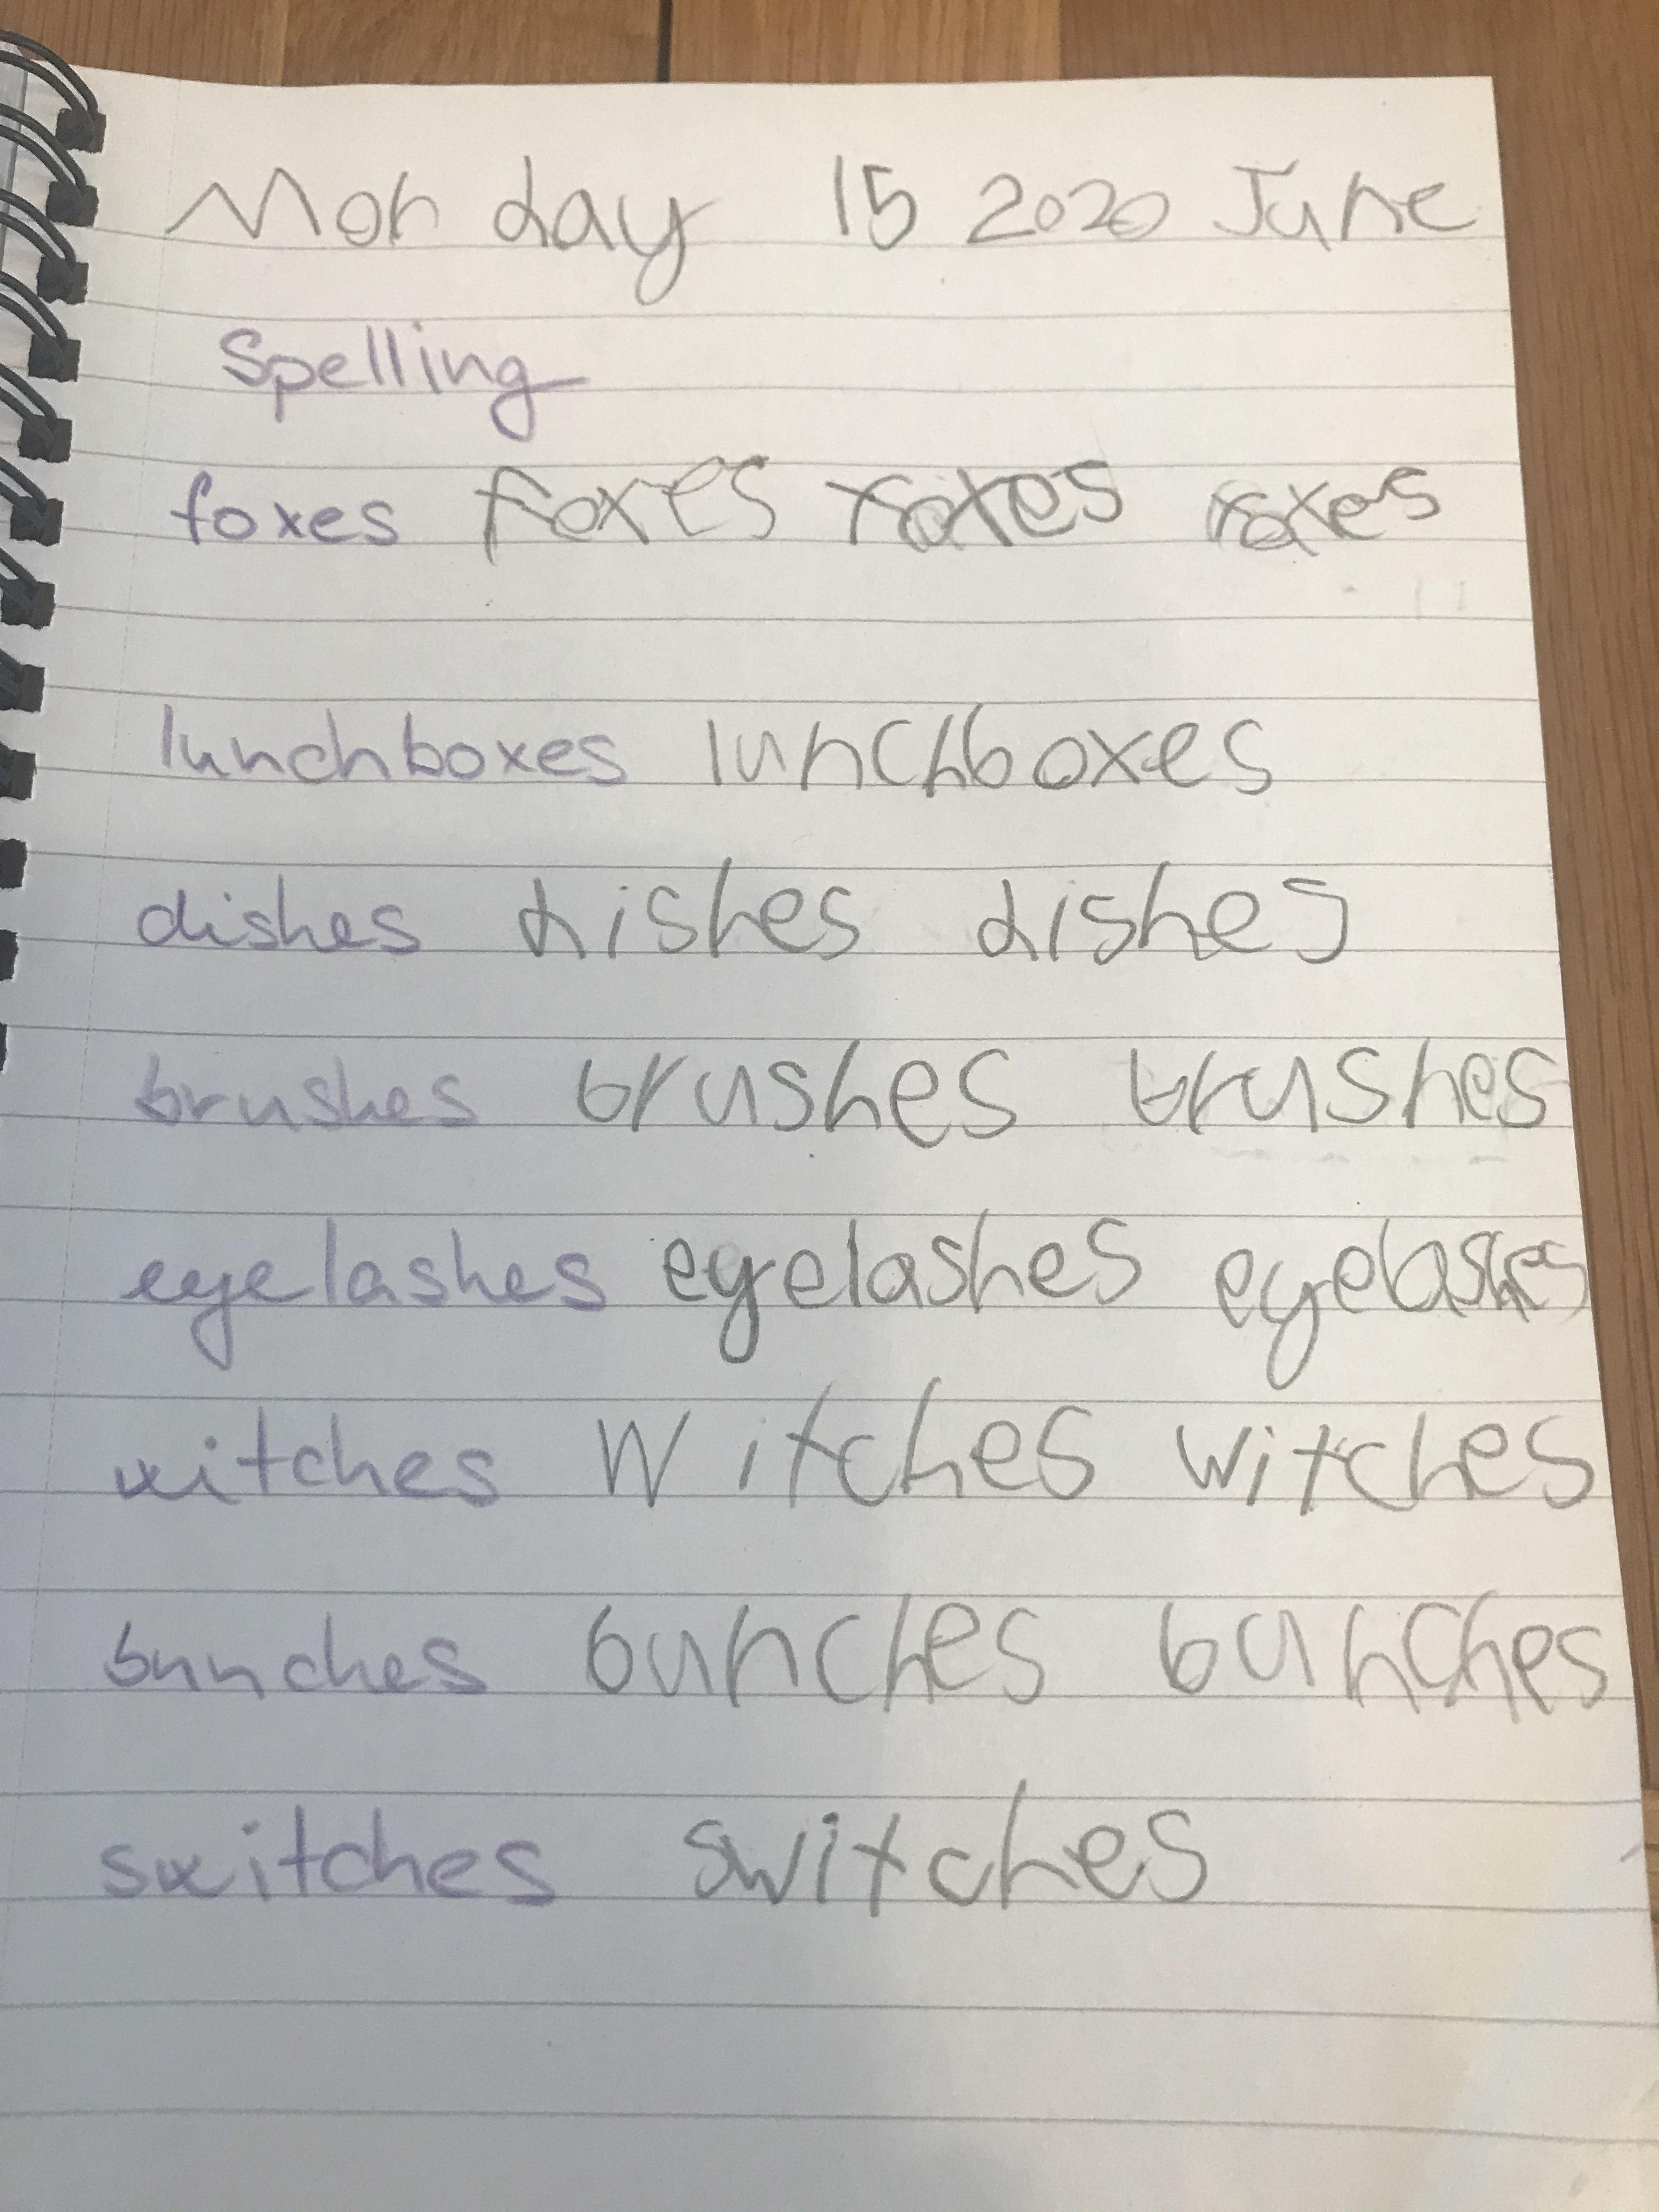 Monday 15 2020 June
Spelling
foxes foxes foxes foxes
lunchboxes lunchboxes
dishes dishes dishes
brushes brushes brushes
eyelashes eyelashes eyelashes
witches Witches witches
bunches bunches bunches
switches switches